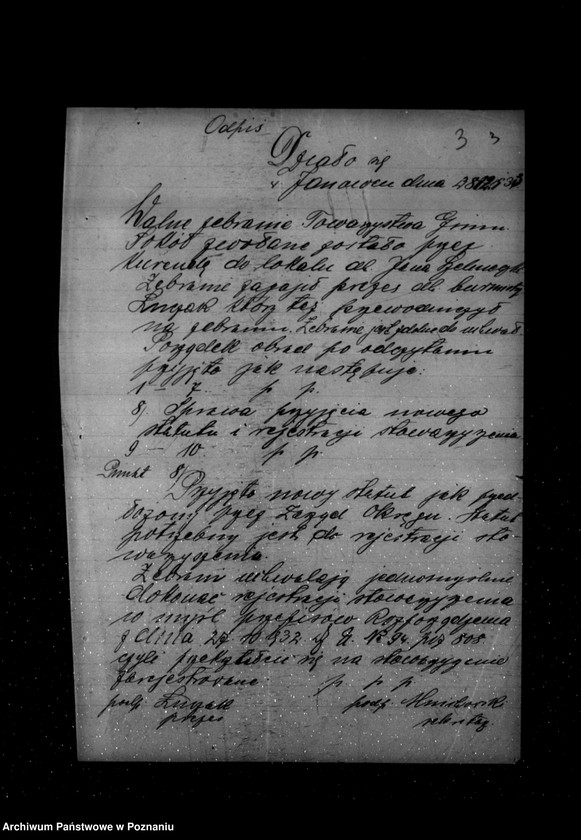 Odpis
3 3
Działo się
w Janowcu dnia
Walne zebranie Towarzystwa Gimn.
Sokół zwołane zostało przez
kurendę do lokalu dh. Jana
Zebranie zagaił prezes dh. burmistrz
który też przewodniczył
na zebraniu. Zebranie jest zdolne do uchwał.
Porządek obrad po odczytaniu
przyjęto jak następuje:
1 – 7 p p.
8/. Sprawa przyjęcia nowego
statutu i rejestracji stowarzyszenia
9 – 10 p p
Punkt 8/
Przyjęto nowy statut jak przed-
łożony przez Zarząd Okręgu. Statut
potrzebny jest do rejestracji sto-
warzyszenia.
Zebrani uchwalają jednomyślnie
dokonać rejestracji stowarzyszenia
w myśl przepisów Rozporządzenia
z dnia 27 10 932. Nr. 94. poz 808
czyli przekształcić się na stowarzyszenie
zarejestrowane. p. p. p.
podp. prezes
podp. sekretarz.
Archiwum Państwowe w Poznaniu